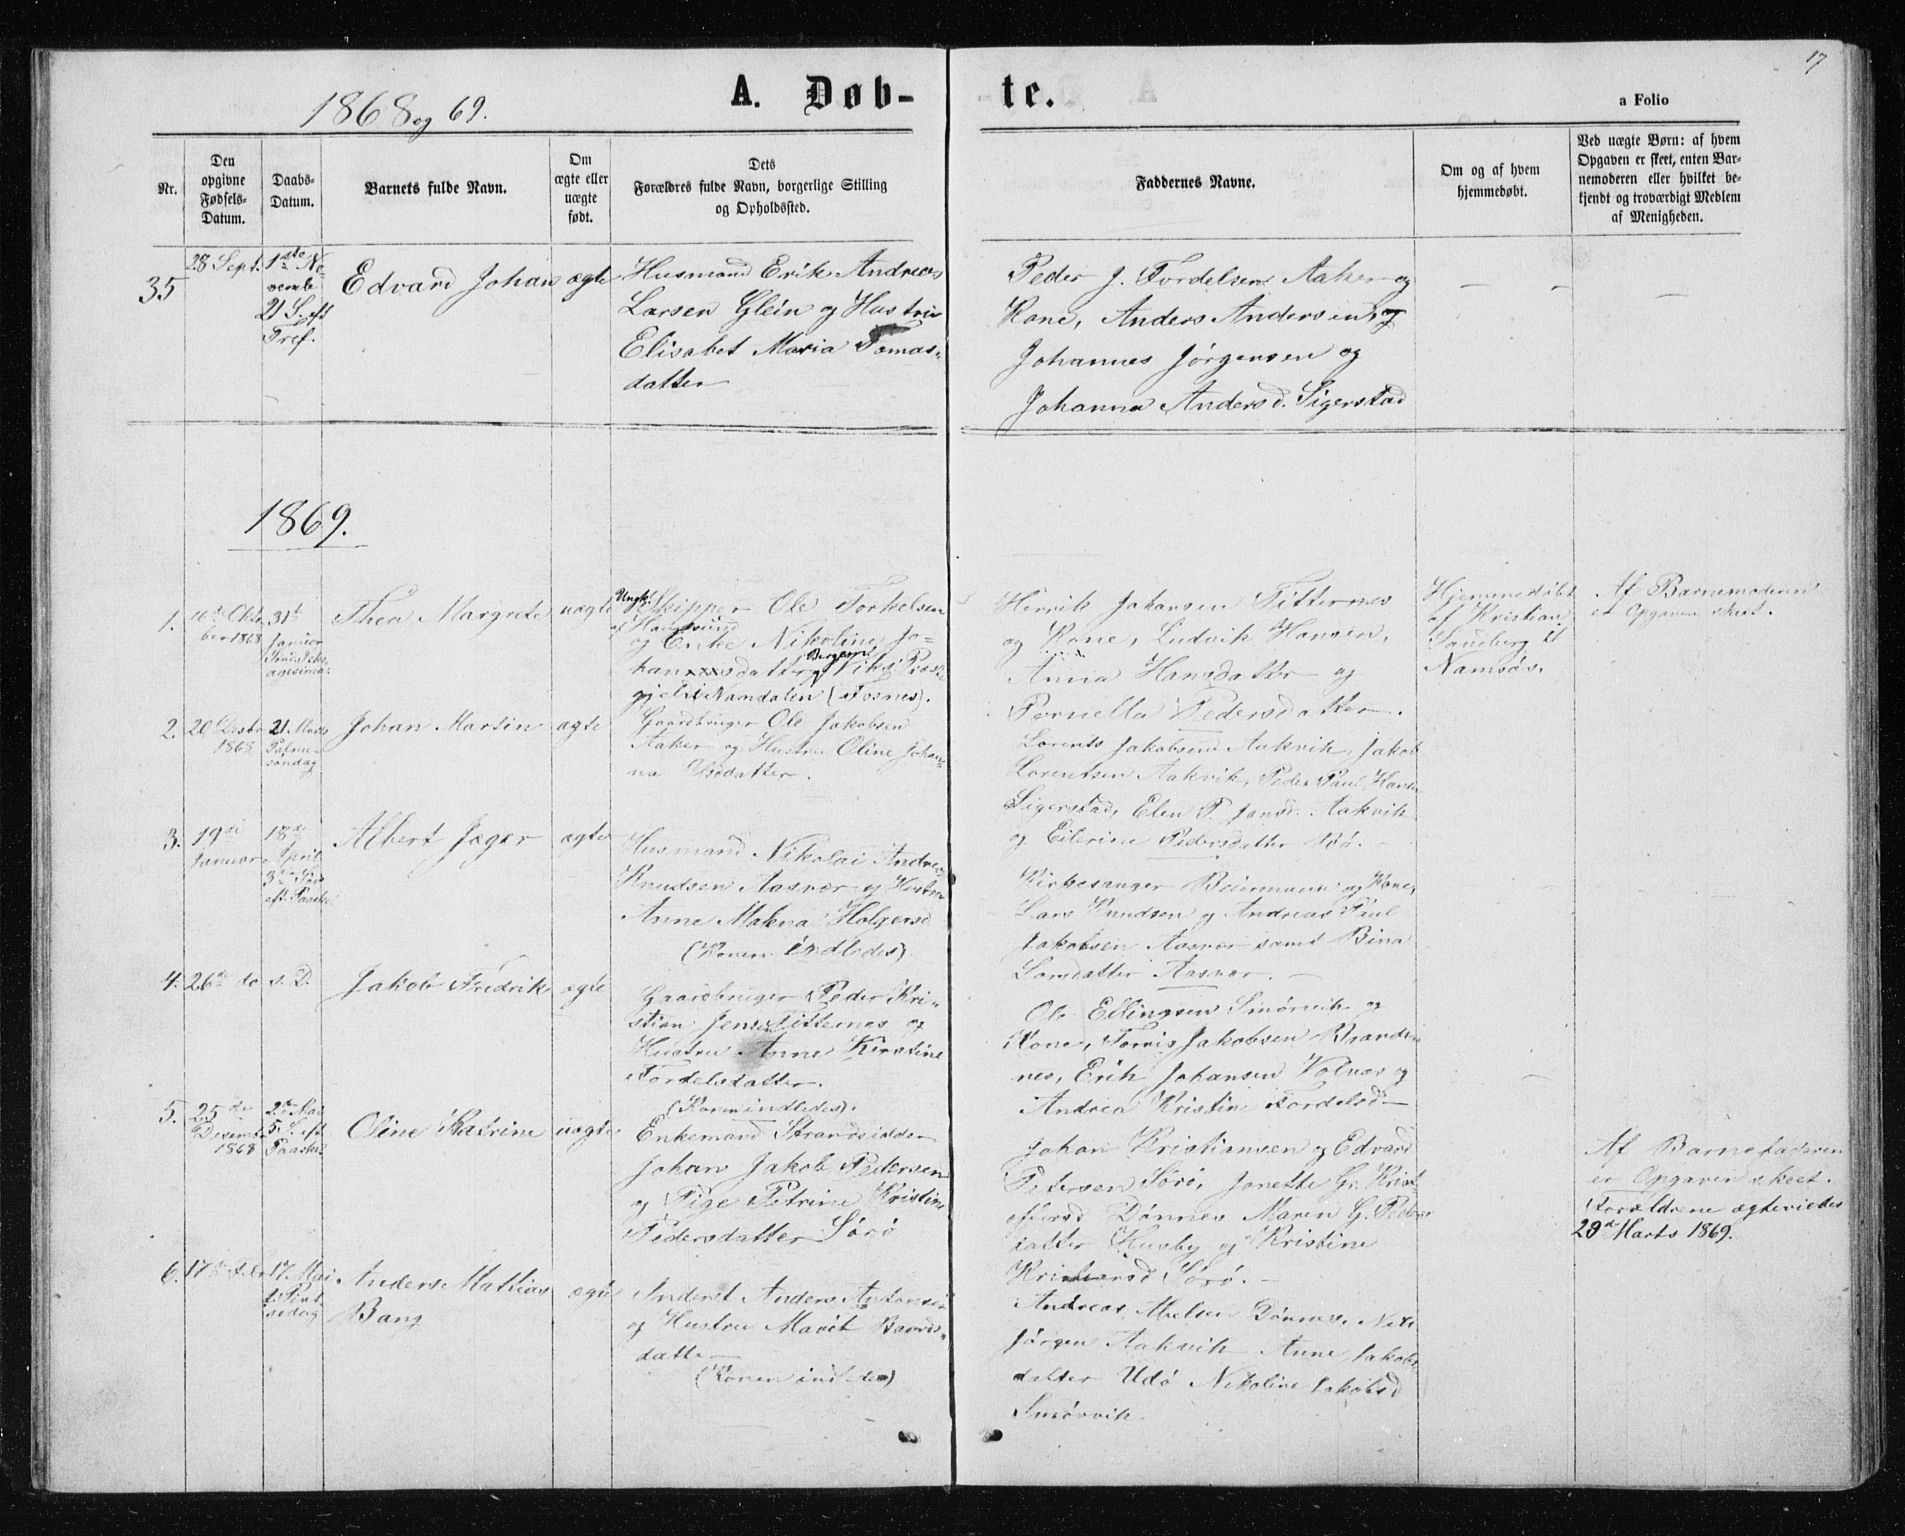 17
1868 og 69.
A. Døb-
te.
a Folio
Nr.
Den
opgivne
Fødsels-
Datum.
Daabs-
Datum.
Barnets fulde Navn.
Om
ægte eller
uægte
født.
Dets
Forældres fulde Navn, borgerlige Stilling
og Opholdssted.
Faddernes Navne.
Om og af hvem
hjemmedøbt.
Ved uægte Børn: af hvem
Opgaven er skeet, enten Bar-
nemoderen eller hvilket be-
kjendt og troværdigt Medlem
af Menigheden.
35
28 Sept.
1ste No-
vembr
21 S. eft
Tref.
Edvard Johan
ægte
Husmand Erik Andreas
Larsen Glein og Hustru
Elisabet Maria Tomas-
datter
Peder J. Tordelsen Aaker og
Kone, Anders Andersen, og
Johannes Jørgensen og
Johanna Andersd. Sigerstad
1869.
1.
Okto
ber 1868
31te
Januar
Thea Margrete
uægte
Ungk. Skipper Ole Torkelsen
og Enke Nikoline Jo-
han datter
gjeld Namdalen (Fosnes).
Henrik Johansen Titternes
og Kone, Ludvik Hansen,
Anna Hansdatter og
Pernella Pedersdatter.
Hjemmedøbt
af Kristian
Sandberg
Namsøs.
Af Barnemoderen
er Opgaven skeet.
2.
20de Desbr
1868
21 Marts
Palme-
søndag
Johan Martin
ægte
Gaardbruger Ole Jakobsen
Aaker og Hustru Oline Johan-
na Olsdatter.
Lorents Jakobsen Aakvik, Jakob
Lorentsen Aakvik, Peder Paul Hansen
Sigerstad, Elen P. Jensd. Aakvik
og Eilerine Pedersdatter Bø.
3.
19de
Januar
18de
April
3die Sønd
eft. Paaske
Albert Jæger
ægte
Husmand Nikolai Andreas
Knudsen Aasvær og Hustru
Anne Makna Holgersd
(Konen indledes)
Kirkesanger Beiermann og Kone,
Lars Knudsen og Andreas Paul
Jakobsen Aasvær samt Bina
Larsdatter Aasvær.
4.
26de do
s. D.
Jakob Fredrik
ægte
Gaardbruger Peder Kri-
stian Jensen Titternes og
Hustru Anne Kirstine
Tordelsdatter.
(Konen indledes).
Ole Ellingsen Smørvik og
Kone, Tomis Jakobsen Brands-
nes, Erik Johansen Volvas og
Andrea Kristin Tordelsd
5.
25de
Desembr
1868
2den Mai
5 S. eft
Paaske
Oline Katrine
uægte
Enkemand Strandsidder
Johan Jakob Pedersen
og Pige Petrine Kristine
Pedersdatter Sørø
Johan Kristiansen og Edvard
Petersen Sørø, Janette Gr. Krist-
offersd Dønnes Maren G. Peders-
datter Husby og Kristine
Kristiansd Sørø.
Af Barnefaderen
er Opgaven skeet.
Forældrene ægteviedes
20de Marts 1869.
6.
17de
17. Mai
Anders Mathias
Bang
ægte
Inderst Anders Antonsen
og Hustru Marit Baards-
datter
(Konen indledes)
Andreas Dønnes, Nils
Jørgen Aakvik Anne Jakobs-
datter Udø Nikoline Jakobsd
Smørvik